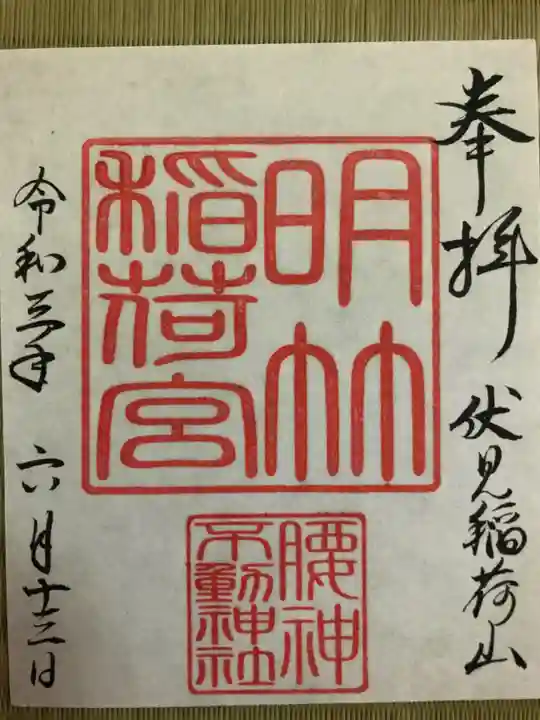 奉拝
伏見稲荷山
明竹
稲荷宮
腰神
不動神社
令和三年 六月十三日